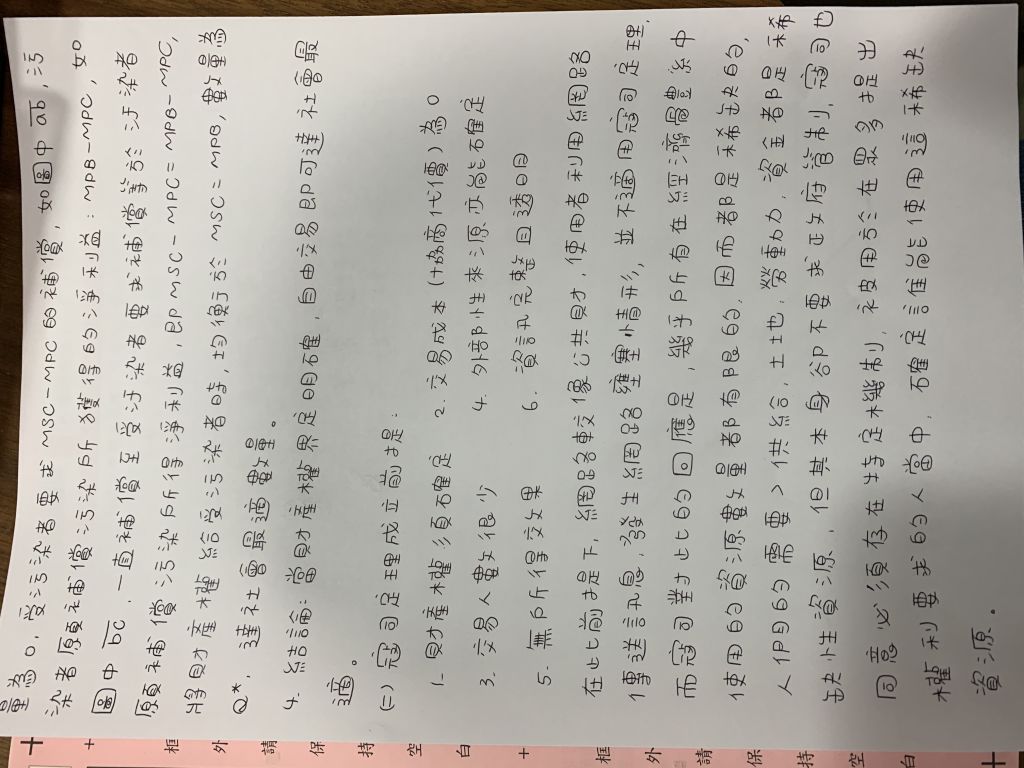 量為0，受污染者要求MSC-MPC的補償，如圖中ab，污
染者願補償污染所獲得的淨利益：MPB-MPC，如
圖中bc，一直補償至受汙染者要求補償等於汙染者
願補償污染所得淨利益，即MSC-MPC=MPB-MPC，
將財產權給受污染者時，均衡於MSC=MPB，數量為
Q*，達社會最適數量。
4. 結論：當財產權界定明確，自由交易即可達社會最
適。
(二) 寇司定理成立前提：
1. 財產權必須確定 2. 交易成本(協商代價)為0
3. 交易人數很少 4. 外部性來源亦能確定
5. 無所得效果 6. 資訊完整且透明
在此前提下，網路較像公共財，使用者利用網路
傳送訊息，發生網路壅塞情形，並不適用寇司定理，
而寇司對此的回應是，幾乎所有在經濟體系中
使用的資源數量都有限的，因而都是稀缺的，
人們的需要>供給，土地，勞動力，資金都是稀
缺性資源，但其本身卻不要求政府管制，寇司也
同意必須存在特定機制，被用於在眾多提出
權利要求的人當中，確定誰能使用這稀缺
資源。
框 外 請 保 持 空 白 框 外 請 保 持 空 白